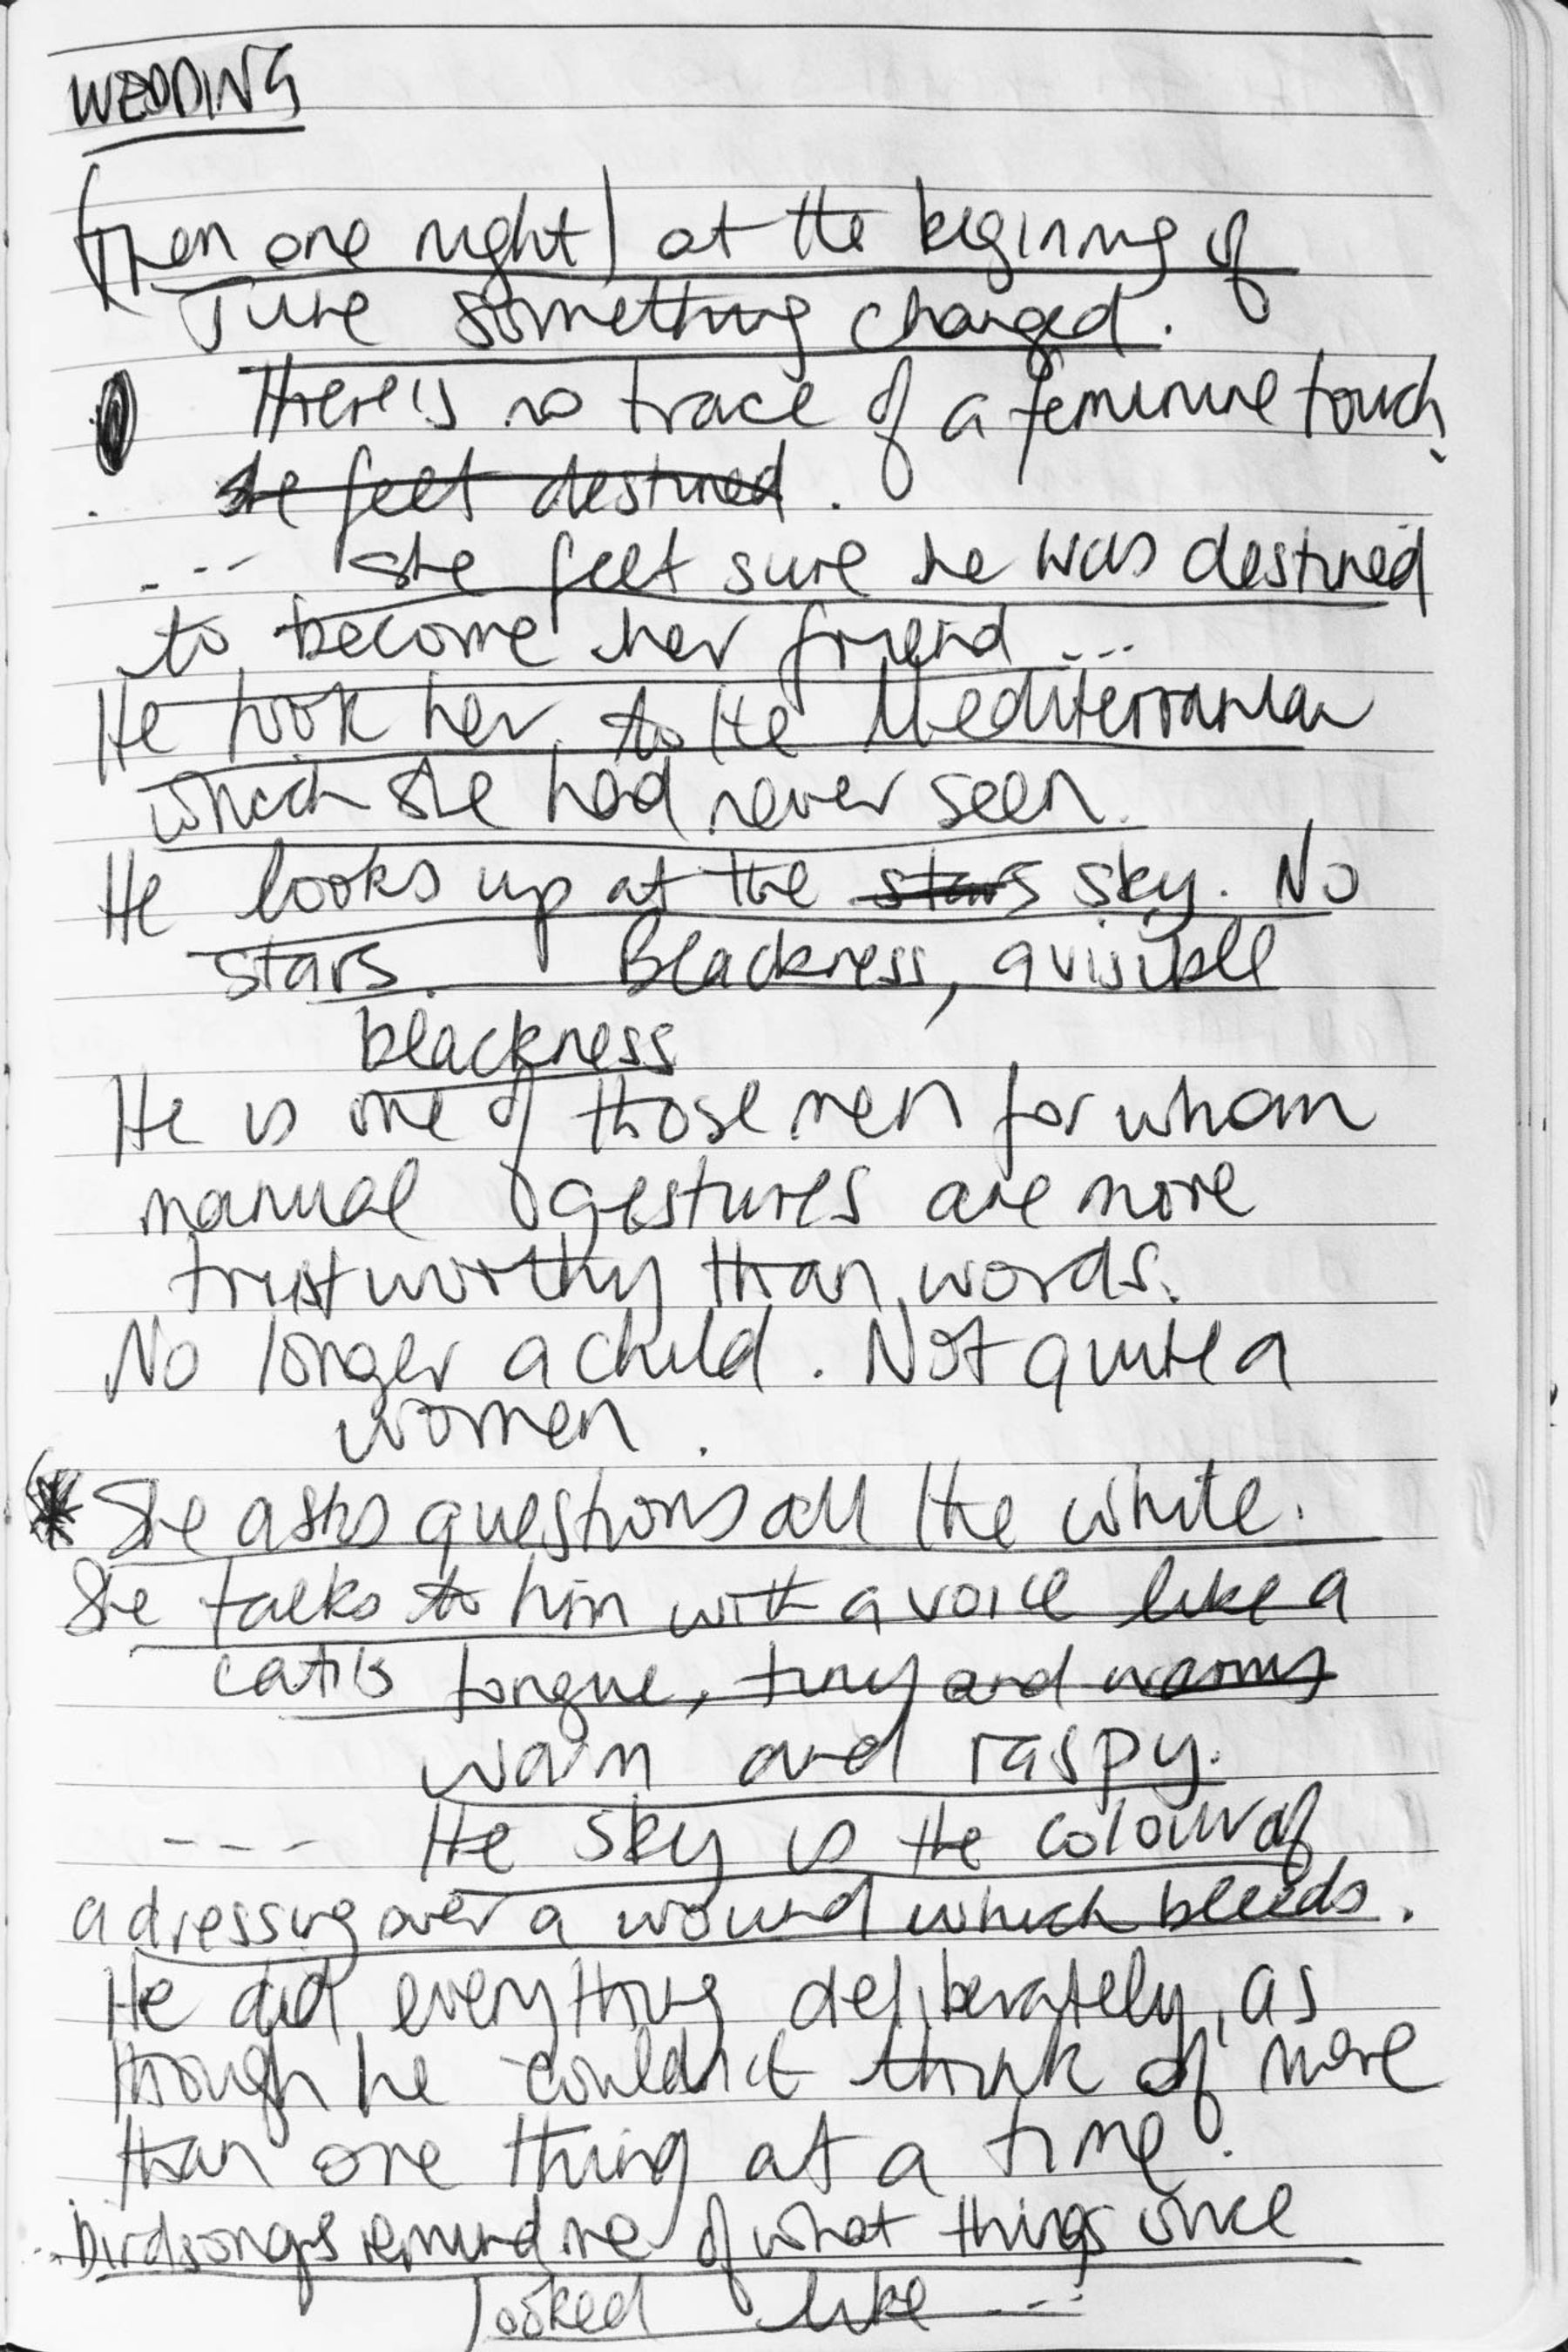 WEDDING
(Then one night) at the beginning of
June something changed.
There is no trace of a feminine touch.
she felt destined.
--- she felt sure he was destined
to become her friend ...
He took her to the Mediterranean
which she had never seen.
He looks up at the stars sky. No
stars. Blackness, a visible
blackness
He is one of those men for whom
manual gestures are more
trustworthy than words.
No longer a child. Not quite a
women.
* She asks questions all the white.
She talks to him with a voice like a
cat's tongue, tiny and warmy
warm and raspy.
--- The sky is the colour of
a dressing over a wound which bleeds.
He did everything deliberately, as
though he couldn't think of more
than one thing at a time.
... birdsongs remind me of what things once
looked like ---